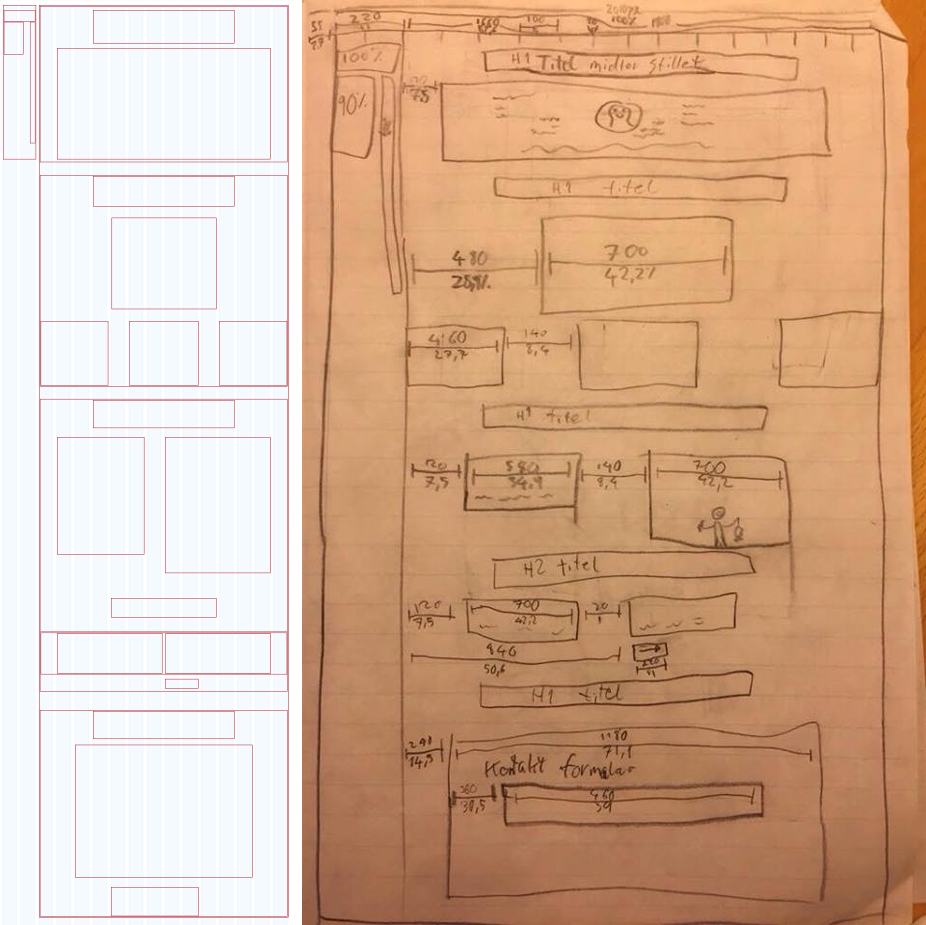 220
11
100
100%
100%
90%
7,5
H1 Titel midter stillet
H1 titel
480
28,9%
700
42,2%
460
27,7
140
8,4
H1 titel
120
7,5
580
34,9
140
8,4
700
42,2
H2 titel
120
7,5
700
42,2
20
1
840
50,6
H1 titel
1180
71,1
14,5
Kontakt formular
360
30,5
460
39